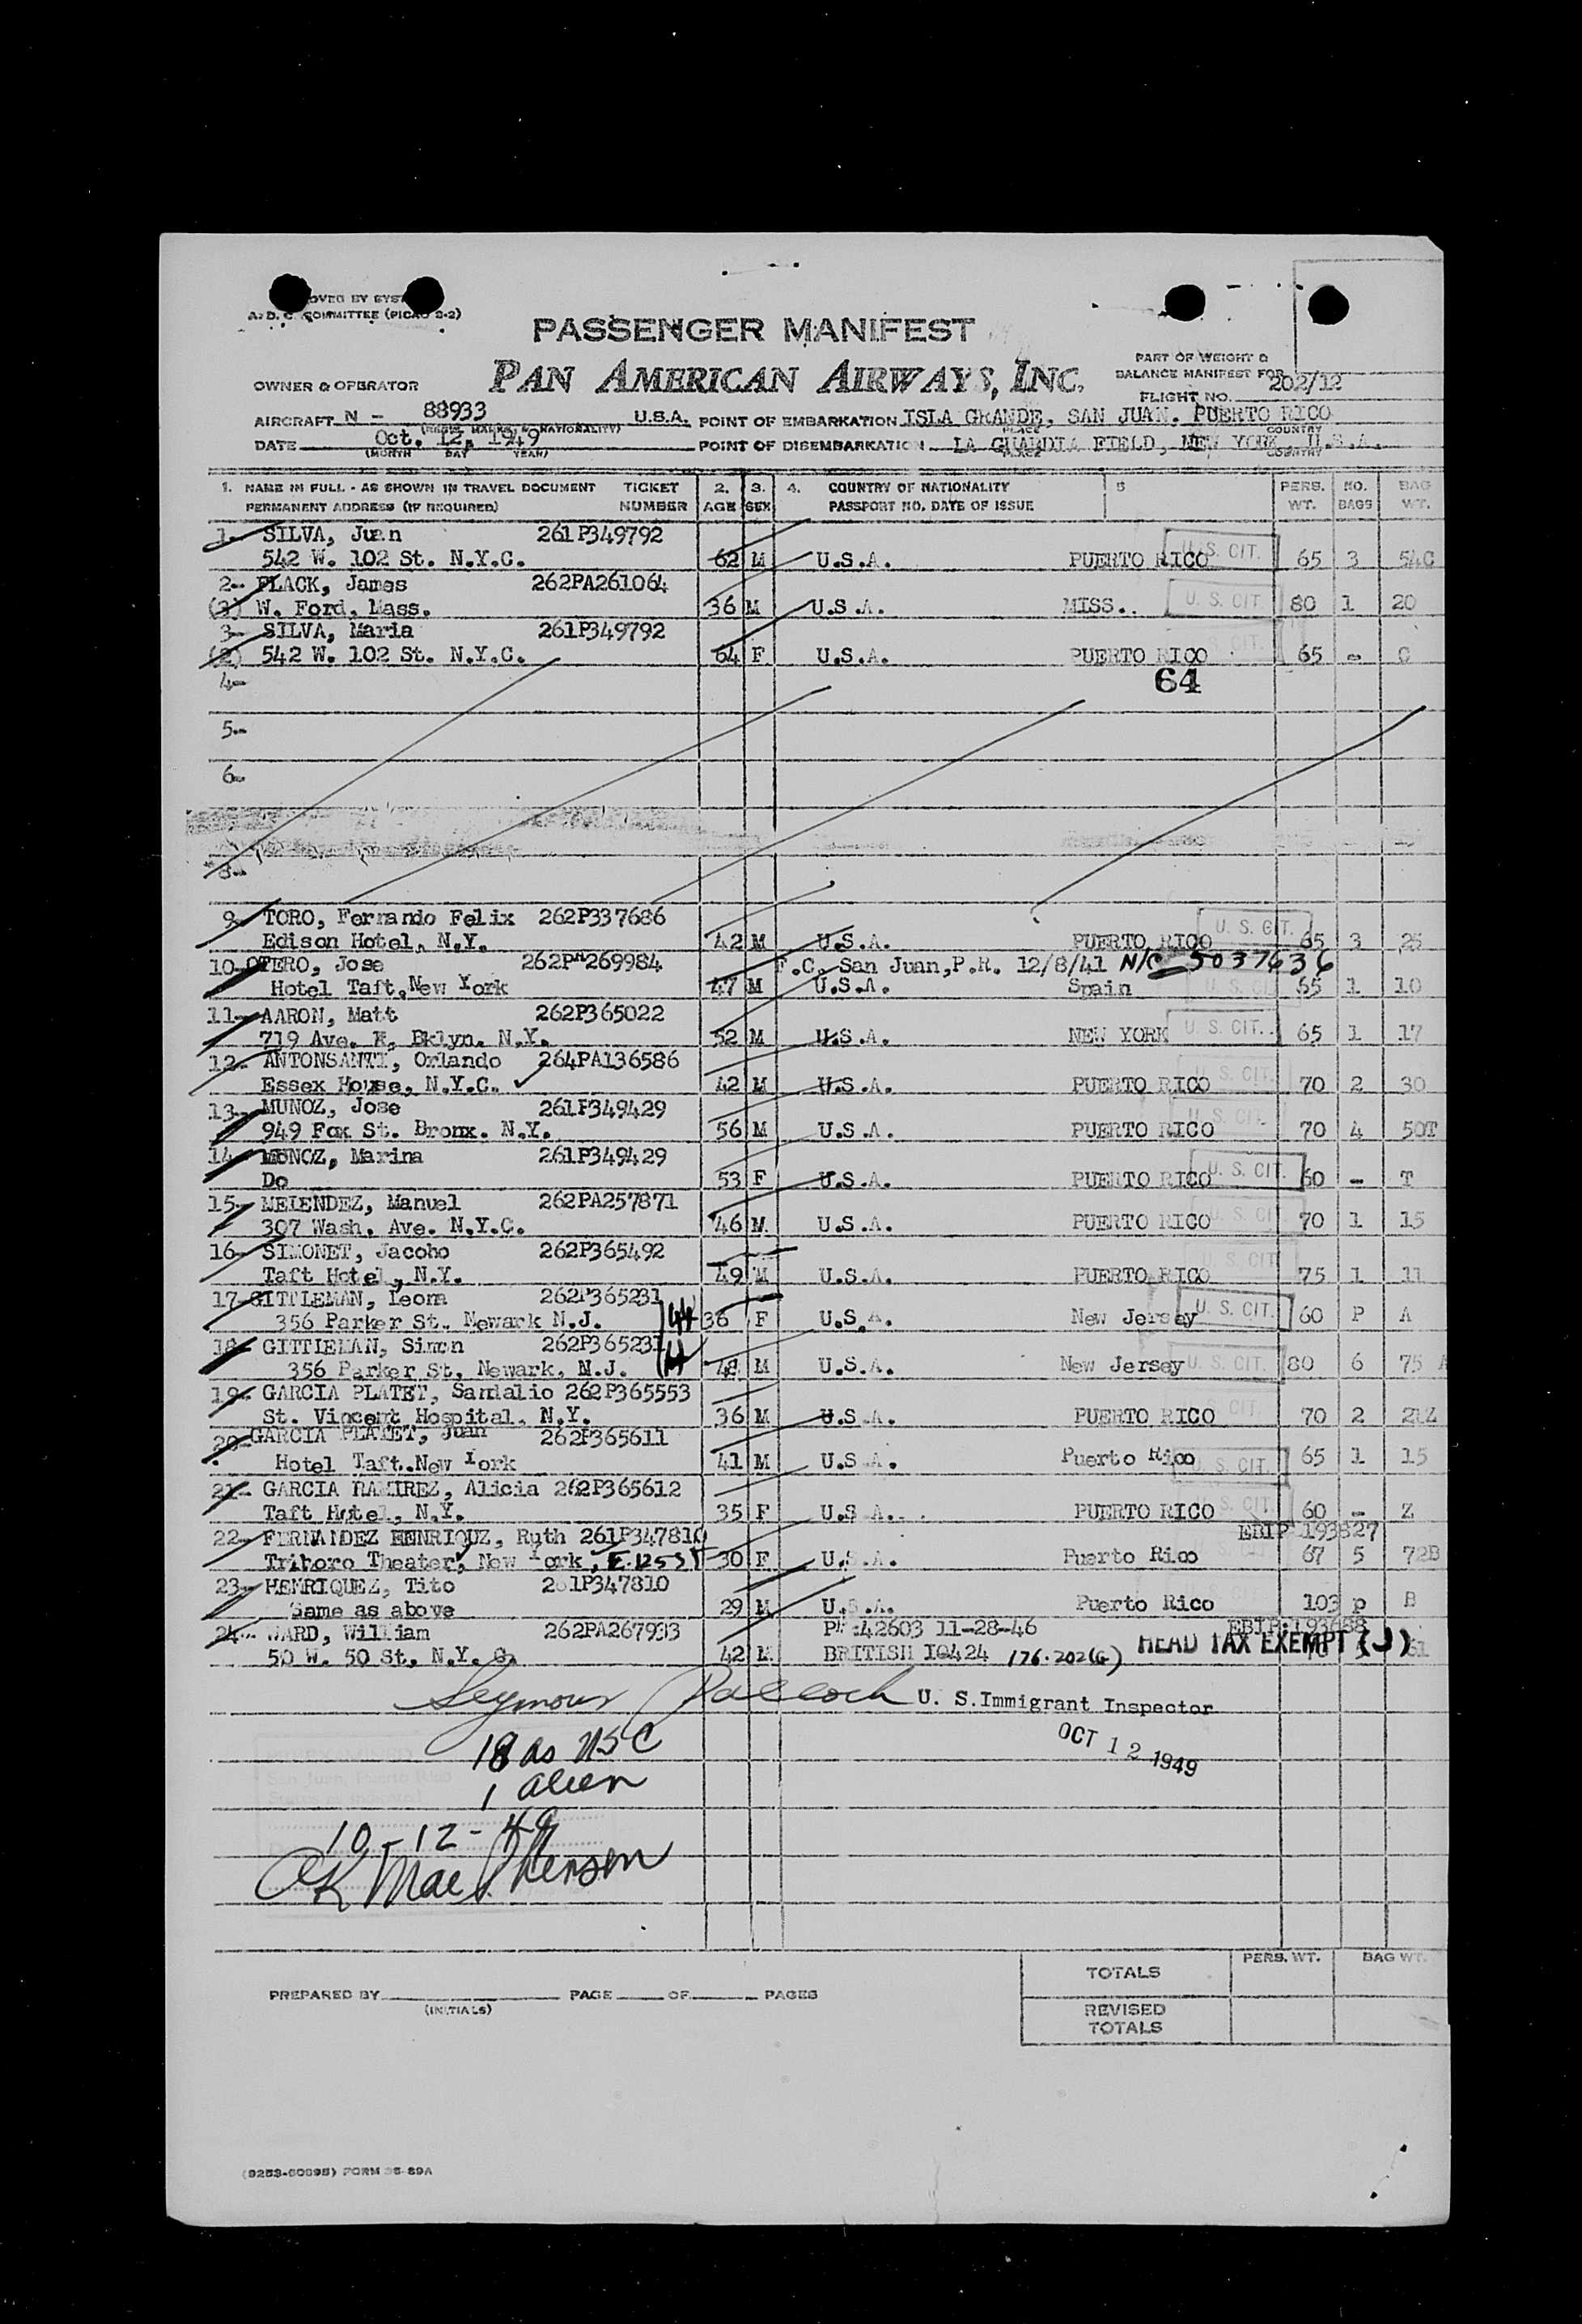 A. D. C. COMMITTEE (PICAO 2-2)
PASSENGER MANIFEST
PAN AMERICAN AIRWAYS, INC.
PART OF WEIGHT &
BALANCE MANIFEST FOR
FLIGHT NO. 202/12
OWNER & OPERATOR
AIRCRAFT N - 88933 U.S.A. POINT OF EMBARKATION ISLA GRANDE, SAN JUAN. PUERTO RICO
PLACE COUNTRY
DATE Oct. 12, 1949 POINT OF DISEMBARKATION LA GUARDIA FIELD, NEW YORK, U.S.A.
(MONTH DAY YEAR) PLACE COUNTRY
1. NAME IN FULL - AS SHOWN IN TRAVEL DOCUMENT TICKET 2. 3. 4. COUNTRY OF NATIONALITY 5 PERS. NO. BAG
PERMANENT ADDRESS (IF REQUIRED) NUMBER AGE SEX PASSPORT NO. DATE OF ISSUE WT. BAGS WT.
1- SILVA, Juan 261P349792
542 W. 102 St. N.Y.C. 62 M U.S.A. PUERTO RICO U. S. CIT. 65 3 54C
2- FLACK, James 262PA261064
(3) W. Ford, Mass. 36 M U.S.A. MISS.. U. S. CIT. 80 1 20
3- SILVA, Maria 261P349792
(2) 542 W. 102 St. N.Y.C. 64 F U.S.A. PUERTO RICO CIT. 65 - C
4- 64
5-
6-
8-
9- TORO, Fernando Felix 262P337686
Edison Hotel, N.Y. 42 M U.S.A. PUERTO RICO U. S. CIT. 65 3 25
10- OTERO, Jose 262PA269984 F.C. San Juan,P.R. 12/8/41 N/C 5037636
Hotel Taft,New York 47 M U.S.A. Spain U. S. CI 65 1 10
11- AARON, Matt 262P365022
719 Ave. K, Bklyn. N.Y. 52 M U.S.A. NEW YORK U. S. CIT. 65 1 17
12- ANTONSANTI, Orlando 264PA136586
Essex House, N.Y.C. 42 M U.S.A. PUERTO RICO U. S. CIT. 70 2 30
13- MUNOZ, Jose 261P349429
949 Fox St. Bronx. N.Y. 56 M U.S.A. PUERTO RICO U. S. CIT. 70 4 50T
14- MUNOZ, Marina 261P349429
Do 53 F U.S.A. PUERTO RICO U. S. CIT. 60 - T
15- MELENDEZ, Manuel 262PA257871
307 Wash. Ave. N.Y.C. 46 M U.S.A. PUERTO RICO U. S. CI 70 1 15
16- SIMONET, Jacobo 262P365492
Taft Hotel, N.Y. 49 M U.S.A. PUERTO RICO U. S. CIT 75 1 11
17- GITTLEMAN, Leona 262P365231
356 Parker St., Newark N.J. 36 F U.S.A. New Jersey U. S. CIT. 60 P A
18- GITTLEMAN, Simon 262P365231
356 Parker St, Newark, N.J. 48 M U.S.A. New Jersey U. S. CIT. 80 6 75 A
19- GARCIA PLATET, Sandalio 262P365553
St. Vincent Hospital, N.Y. 36 M U.S.A. PUERTO RICO S. CIT. 70 2 21Z
20- GARCIA PLATET, Juan 262P365611
Hotel Taft.New York 41 M U.S.A. Puerto Rico U. S. CIT. 65 1 15
21- GARCIA RAMIREZ, Alicia 262P365612
Taft Hotel, N.Y. 35 F U.S.A. PUERTO RICO U. S. CIT. 60 - Z
22- FERNANDEZ HENRIQUZ, Ruth 261P347810 EBIP 193827
Triboro Theater, New York, E.125 ST 30 F U.S.A. Puerto Rico 67 5 72B
23- HENRIQUEZ, Tito 261P347810
Same as above 29 M U.S.A. Puerto Rico 103 p B
24- WARD, William 262PA267933 PP:42603 11-28-46
50 W. 50 St, N.Y. C. 42 M BRITISH IQ424 176.202(G) HEAD TAX EXEMPT (J)
Seymour U. S.Immigrant Inspector
OCT 12 1949
18 as USC
1 alien
San Juan, Puerto Rico
Status as indicated
10-12-49
OK MacPherson
PERS. WT. BAG WT.
TOTALS
PREPARED BY PAGE OF PAGES
(INITIALS)
REVISED
TOTALS
(9253-60695) FORM 35-89A